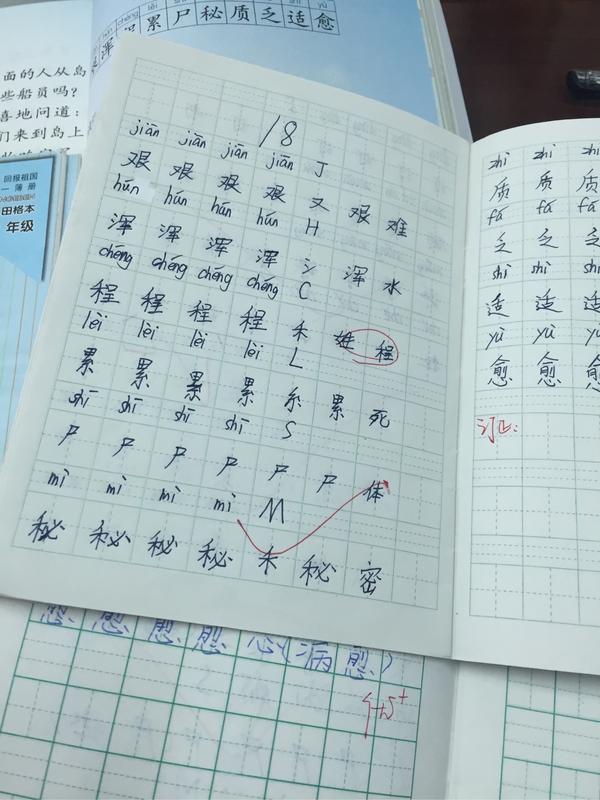 累尸秘质乏适愈
面的人从岛
些船员吗?
喜地问道:
们来到岛上
回报祖国
一薄册
田格本
年级
18
jiān jiān jiān jiān J
艰 艰 艰 艰 又 艰 难
hún hún hún hún H
浑 浑 浑 浑 氵 浑 水
chéng chéng chéng chéng C
程 程 程 程 禾 程
lèi lèi lèi lèi L
累 累 累 累 糸 累 死
shī shī shī shī S
尸 尸 尸 尸 尸 尸 体
mì mì mì mì M
秘 秘 秘 秘 禾 秘 密
zhì zhì zhì
质 质 质
fá fá fá
乏 乏 乏
shì shì shì
适 适 适
yù yù yù
愈 愈 愈
订正:
愈 愈 愈 愈 心(病愈)